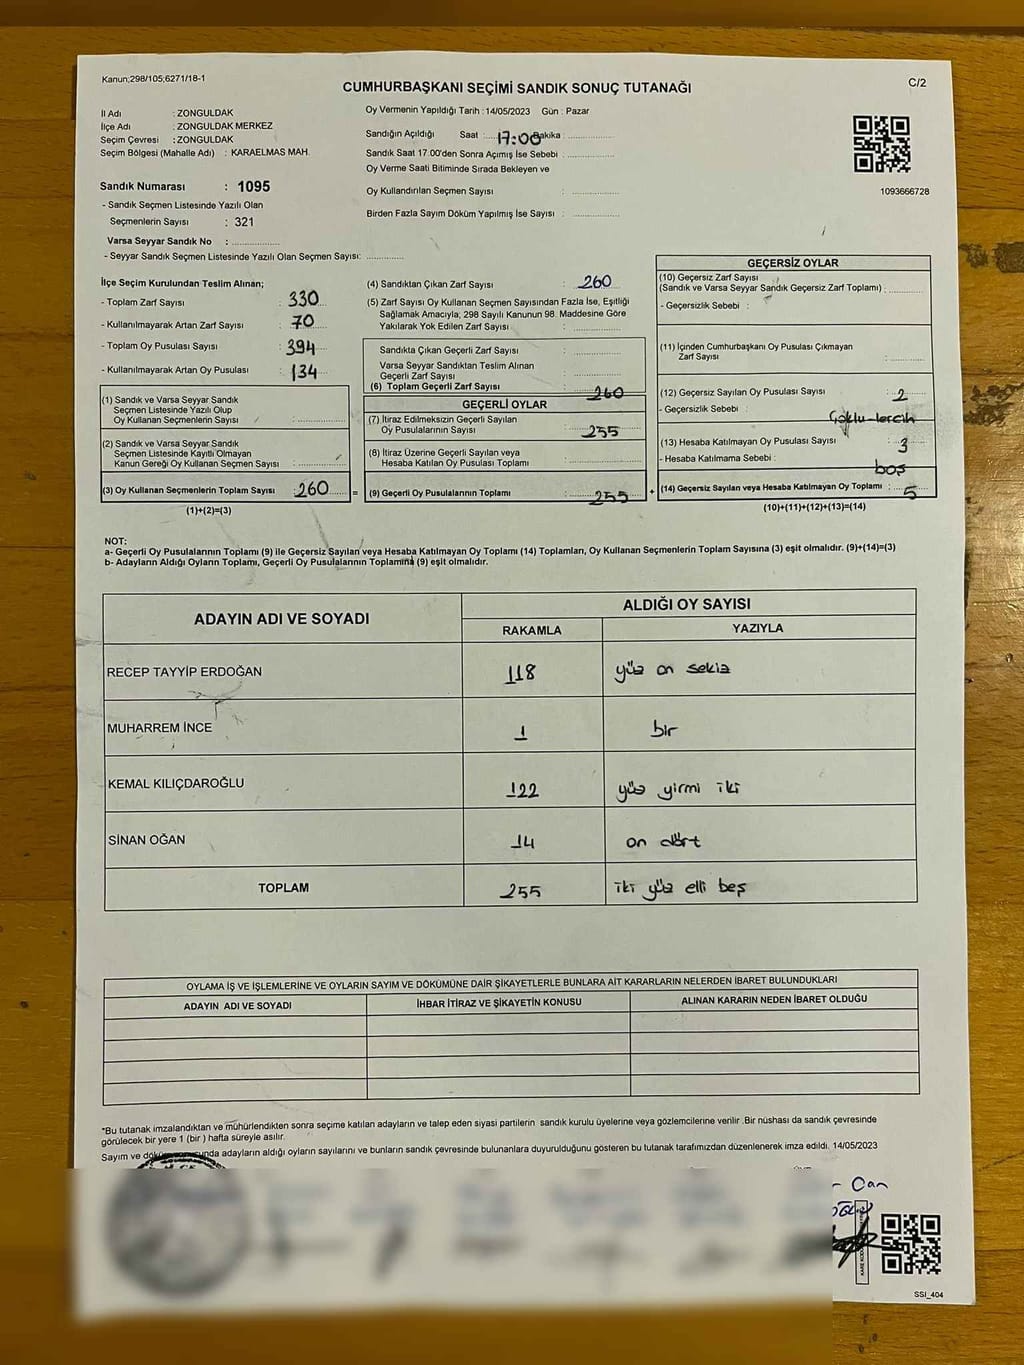 Kanun;298/105;6271/18-1
CUMHURBAŞKANI SEÇİMİ SANDIK SONUÇ TUTANAĞI
C/2
İl Adı : ZONGULDAK
İlçe Adı : ZONGULDAK MERKEZ
Seçim Çevresi : ZONGULDAK
Seçim Bölgesi (Mahalle Adı) : KARAELMAS MAH.
Oy Vermenin Yapıldığı Tarih : 14/05/2023 Gün : Pazar
Sandığın Açıldığı Saat :..... 17:00 Dakika : ..............
Sandık Saat 17:00'den Sonra Açımış İse Sebebi : ..............
Oy Verme Saati Bitiminde Sırada Bekleyen ve
Oy Kullandırılan Seçmen Sayısı : ..............
Birden Fazla Sayım Döküm Yapılmış İse Sayısı : ..............
1093666728
Sandık Numarası : 1095
- Sandık Seçmen Listesinde Yazılı Olan
Seçmenlerin Sayısı : 321
Varsa Seyyar Sandık No : ..............
- Seyyar Sandık Seçmen Listesinde Yazılı Olan Seçmen Sayısı: ..............
İlçe Seçim Kurulundan Teslim Alınan;
- Toplam Zarf Sayısı : 330
- Kullanılmayarak Artan Zarf Sayısı : 70
- Toplam Oy Pusulası Sayısı : 394
- Kullanılmayarak Artan Oy Pusulası : 134
(1) Sandık ve Varsa Seyyar Sandık
Seçmen Listesinde Yazılı Olup
Oy Kullanan Seçmenlerin Sayısı : ..............
(2) Sandık ve Varsa Seyyar Sandık
Seçmen Listesinde Kayıtlı Olmayan
Kanun Gereği Oy Kullanan Seçmen Sayısı : ..............
(3) Oy Kullanan Seçmenlerin Toplam Sayısı : 260
(1)+(2)=(3)
=
(4) Sandıktan Çıkan Zarf Sayısı : 260
(5) Zarf Sayısı Oy Kullanan Seçmen Sayısından Fazla İse, Eşitliği
Sağlamak Amacıyla; 298 Sayılı Kanunun 98. Maddesine Göre
Yakılarak Yok Edilen Zarf Sayısı : ..............
Sandıkta Çıkan Geçerli Zarf Sayısı : ..............
Varsa Seyyar Sandıktan Teslim Alınan
Geçerli Zarf Sayısı : ..............
(6) Toplam Geçerli Zarf Sayısı : 260
GEÇERLİ OYLAR
(7) İtiraz Edilmeksizin Geçerli Sayılan
Oy Pusulalarının Sayısı : 255
(8) İtiraz Üzerine Geçerli Sayılan veya
Hesaba Katılan Oy Pusulası Toplamı : ..............
(9) Geçerli Oy Pusulalarının Toplamı : 255
+
GEÇERSİZ OYLAR
(10) Geçersiz Zarf Sayısı
(Sandık ve Varsa Seyyar Sandık Geçersiz Zarf Toplamı) : ..............
- Geçersizlik Sebebi :
(11) İçinden Cumhurbaşkanı Oy Pusulası Çıkmayan
Zarf Sayısı : ..............
(12) Geçersiz Sayılan Oy Pusulası Sayısı : 2
- Geçersizlik Sebebi : Çoklu tercih
(13) Hesaba Katılmayan Oy Pusulası Sayısı : 3
- Hesaba Katılmama Sebebi : boş
(14) Geçersiz Sayılan veya Hesaba Katılmayan Oy Toplamı : 5
(10)+(11)+(12)+(13)=(14)
NOT:
a- Geçerli Oy Pusulalarının Toplamı (9) ile Geçersiz Sayılan veya Hesaba Katılmayan Oy Toplamı (14) Toplamları, Oy Kullanan Seçmenlerin Toplam Sayısına (3) eşit olmalıdır. (9)+(14)=(3)
b- Adayların Aldığı Oyların Toplamı, Geçerli Oy Pusulalarının Toplamına (9) eşit olmalıdır.
ADAYIN ADI VE SOYADI
ALDIĞI OY SAYISI
RAKAMLA YAZIYLA
RECEP TAYYİP ERDOĞAN 118 yüz on sekiz
MUHARREM İNCE 1 bir
KEMAL KILIÇDAROĞLU 122 yüz yirmi iki
SİNAN OĞAN 14 on dört
TOPLAM 255 iki yüz elli beş
OYLAMA İŞ VE İŞLEMLERİNE VE OYLARIN SAYIM VE DÖKÜMÜNE DAİR ŞİKAYETLERLE BUNLARA AİT KARARLARIN NELERDEN İBARET BULUNDUKLARI
ADAYIN ADI VE SOYADI İHBAR İTİRAZ VE ŞİKAYETİN KONUSU ALINAN KARARIN NEDEN İBARET OLDUĞU
*Bu tutanak imzalandıktan ve mühürlendikten sonra seçime katılan adayların ve talep eden siyasi partilerin sandık kurulu üyelerine veya gözlemcilerine verilir .Bir nüshası da sandık çevresinde
görülecek bir yere 1 (bir ) hafta süreyle asılır.
Sayım ve dökümü sonunda adayların aldığı oyların sayılarını ve bunların sandık çevresinde bulunanlara duyurulduğunu gösteren bu tutanak tarafımızdan düzenlenerek imza edildi. 14/05/2023
Can
SSI_404